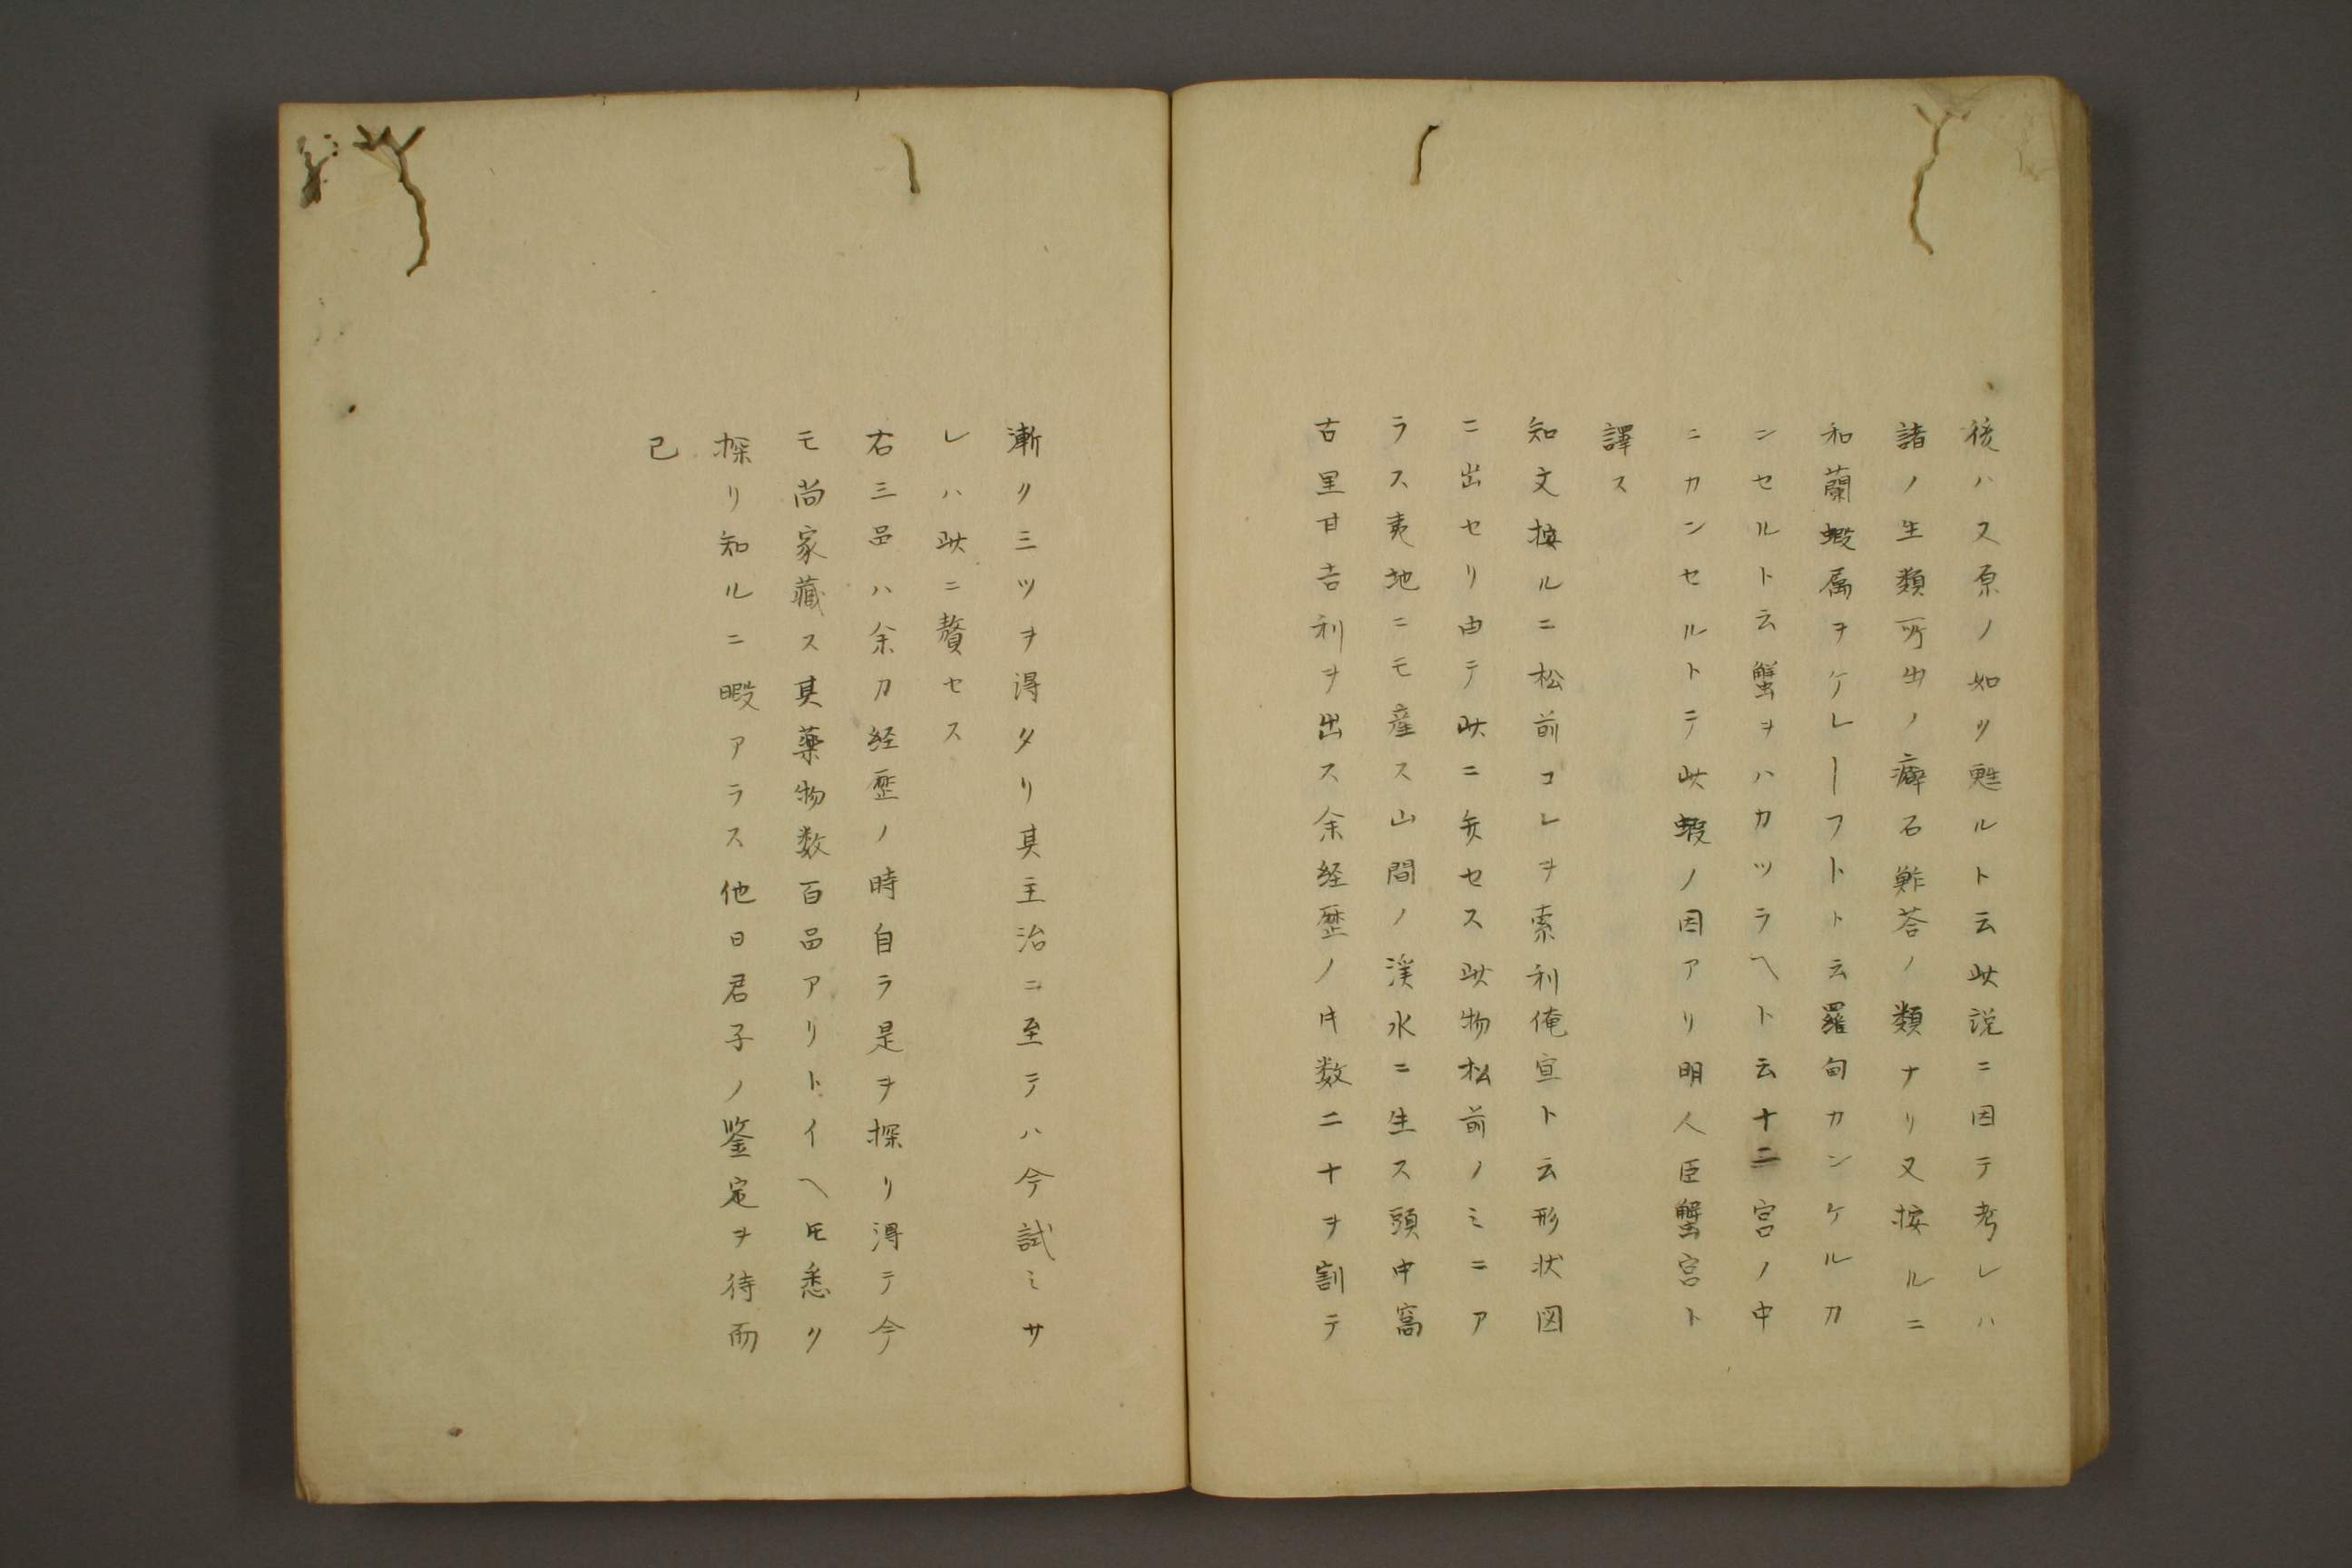 後ハス原ノ如ク甦ルト云此説ニ因テ考レハ
諸ノ生類所出ノ癖石鮓荅ノ類ナリ又按ルニ
和蘭蝦属ヲケレーフトト云羅甸カンケルカ
ンセルト云蟹ヲハカツラヘト云十二宮ノ中
ニカンセルトテ此蝦ノ因アリ明人臣蟹宮ト
譯ス
知文按ルニ松前コレヲ索利俺宣ト云形状図
ニ出セリ由テ此ニ弁セス此物松前ノミニア
ラス夷地ニモ産ス山間ノ渓水ニ生ス頭中窩
古里甘吉利ヲ出ス余経歴ノ时数二十ヲ割テ
漸ク三ツヲ得タリ其主治ニ至テハ今試ミサ
レハ此ニ贅セス
右三品ハ余カ経歴ノ時自ラ是ヲ探リ得テ今
モ尚家蔵ス其薬物数百品アリトイヘ𪜈悉ク
探リ知ルニ暇アラス他日君子ノ鑒定ヲ待而
已